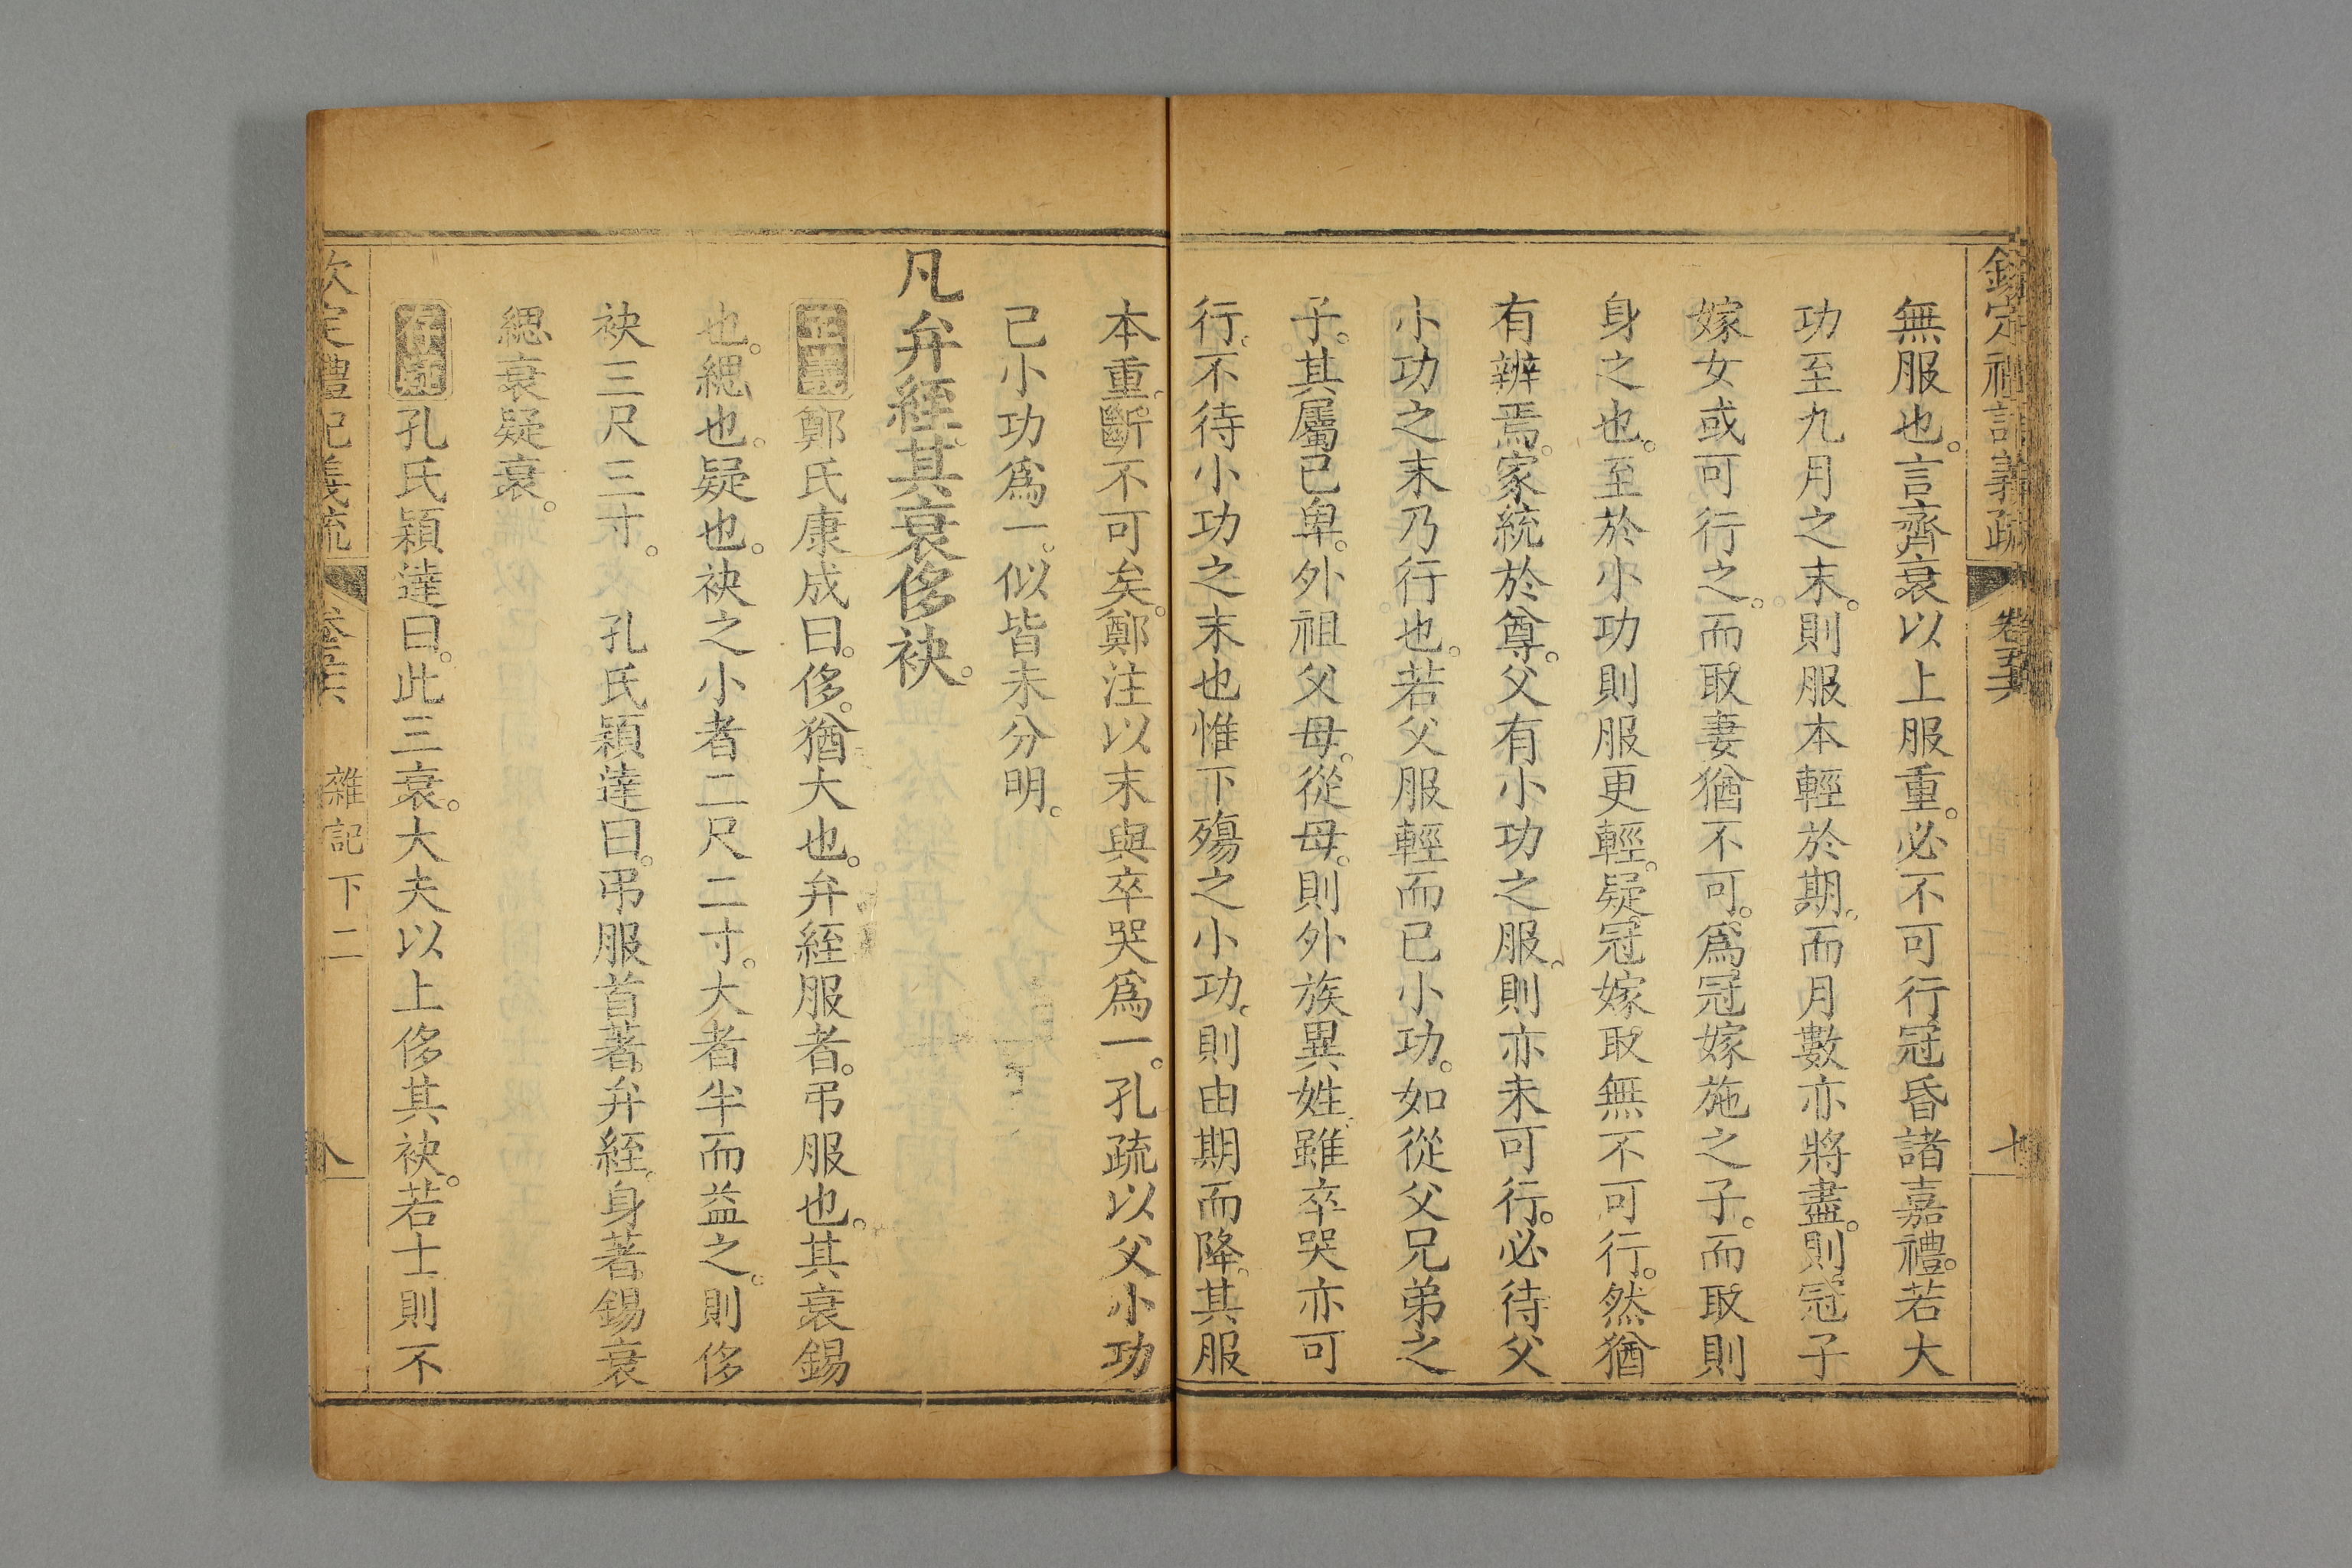 欽定禮記義疏 卷五十六 七
無服也。言齊衰以上服重。必不可行冠昏諸嘉禮。若大
功至九月之末。則服本輕於期。而月數亦將盡。則冠子
嫁女或可行之。而取妻猶不可。爲冠嫁施之子。而取則
身之也。至於小功則服更輕。疑冠嫁取無不可行。然猶
有辨焉。家統於尊。父有小功之服。則亦未可行。必待父
小功之末乃行也。若父服輕而已小功。如從父兄弟之
子。其屬已卑。外祖父母。從母。則外族異姓。雖卒哭亦可
行。不待小功之末也惟下殤之小功。則由期而降。其服
本重。斷不可矣。鄭注以末與卒哭爲一。孔疏以父小功
己小功爲一。似皆未分明。
凡弁絰其衰侈袂。
正義鄭氏康成曰。侈。猶大也。弁絰服者。弔服也。其衰錫
也。緦也。疑也。袂之小者二尺二寸。大者半而益之。則侈
袂三尺三寸。 孔氏穎達曰。弔服首著。弁絰。身著錫衰
緦衰疑衰。
存疑孔氏穎達曰。此三衰。大夫以上侈其袂。若士則不
欽定禮記義疏 卷五十六 雜記下二 八